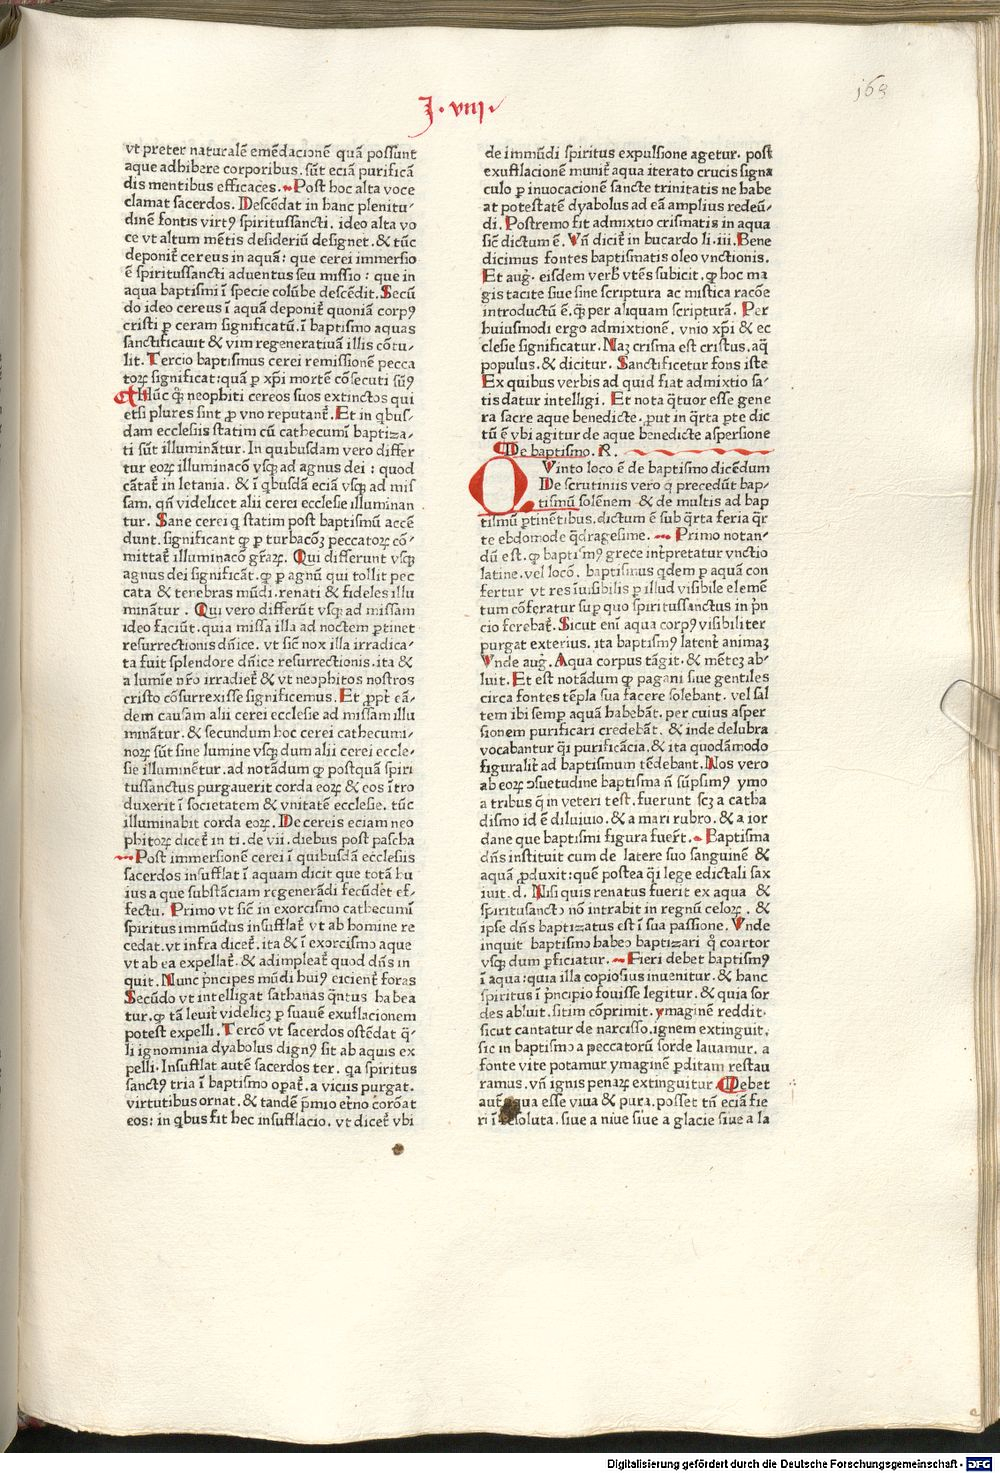 J. viii.
163
vt preter naturalē emēdacionē quā possunt
aque adhibere corporibus. sūt eciā purificā
dis mentibus efficaces. Post hoc alta voce
clamat sacerdos. Descēdat in hanc plenitu⸗
dinē fontis virtꝰ spiritussancti. ideo alta vo
ce vt altum mētis desideriū designet. & tūc
deponit᷑ cereus in aquā: que cerei immersio
ē spiritussancti aduentus seu missio: que in
aqua baptismi ī specie colūbe descēdit. Secū
do ideo cereus ī aquā deponit᷑ quoniā corpꝰ
cristi ꝑ ceram significatū. ī baptismo aquas
sanctificauit & vim regeneratiuā illis cōtu⸗
lit. Tercio baptismus cerei remissionē pecca
toꝝ significat: quā ꝑ xp̄i mortē cōsecuti sūꝰ
Hūc ꝙ̄ neophiti cereos suos extinctos qui
etsi plures sint ꝓ vno reputant᷑. Et in qbus⸗
dam ecclesiis statim cū cathecumī baptiza⸗
ti sūt illuminātur. In quibusdam vero differ
tur eoꝝ illuminacō vsqꝫ ad agnus dei: quod
cātat᷑ in letania. & ī qbusdā eciā vsqꝫ ad mis
sam. qn̄ videlicet alii cerei ecclesie illuminan
tur. Sane cerei q statim post baptismū accē
dunt. significant ꝙ ꝑ turbacōꝫ peccatoꝝ cō⸗
mittat᷑ illuminacō gr̄aꝝ. Qui differunt vsqꝫ
agnus dei significāt. ꝙ ꝑ agnū qui tollit pec
cata & tenebras mūdi. renati & fideles illu
minātur. Qui vero differūt vsqꝫ ad missam
ideo faciūt. quia missa illa ad noctem ꝑtinet
resurrectionis dn̄ice. vt sic̄ nox illa irradica⸗
ta fuit splendore dn̄ice resurrectionis. ita &
a lumīe nr̄o irradiet᷑ & vt neophitos nostros
cristo cōsurrexisse significemus. Et ꝓpt᷑ eā⸗
dem causam alii cerei ecclesie ad missam illu
minātur. & secundum hoc cerei cathecumi⸗
noꝝ sūt sine lumine vsqꝫ dum alii cerei eccle⸗
sie illuminētur. ad notādum ꝙ postquā spiri
tussanctus purgauerit corda eoꝝ & eos ītro
duxerit ī societatem & vnitatē ecclesie. tūc
illuminabit corda eoꝝ. De cereis eciam neo
phitoꝝ dicet᷑ in ti. de vii. diebus post pascha
Post immersionē cerei ī quibusdā ecclesiis
sacerdos insufflat ī aquam dicit que totā hu
ius aque substāciam regenerādi fecūdet ef⸗
fectu. Primo vt sic̄ in exorcismo cathecumī
spiritus immūdus insufflat᷑ vt ab homine re
cedat. vt infra dicet᷑. ita & ī exorcismo aque
vt ab ea expellat᷑. & adimpleat᷑ quod dn̄s in
quit. Nunc prīncipes mūdi huiꝰ eicient᷑ foras
Secūdo vt intelligat sathanas qntus habea
tur. ꝙ tā leuit᷑ videlicꝫ ꝑ suauē exuflacionem
potest expelli. Tercō vt sacerdos ostēdat q⸗
li ignominia dyabolus dignꝰ sit ab aquis ex
pelli. Insufflat autē sacerdos ter. qa spiritus
sanctꝰ tria ī baptismo opat᷑. a viciis purgat.
virtutibus ornat. & tandē p̄mio et̄no corōat
eos: in qbus fit hec insufflacio. vt dicet᷑ vbi
de immūdi spiritus expulsione agetur. post
exufflacionē munit᷑ aqua iterato crucis signa
culo ꝑ inuocacionē sancte trinitatis ne habe
at potestatē dyabolus ad eā amplius redeū⸗
di. Postremo fit admixtio crismatis in aqua
sic̄ dictum ē. Vn̄ dicit᷑ in bucardo li. iii. Bene
dicimus fontes baptismatis oleo vnctionis.
Et augꝰ. eisdem verb̄ vtēs subicit. ꝙ hoc ma
gis tacite siue sine scriptura ac mistica racōe
introductū ē. ꝙ̄ per aliquam scripturā. Per
huiusmodi ergo admixtionē. vnio xp̄i & ec
clesie significatur. Naꝫ crisma est cristus. aq̄
populus. & dicitur. Sanctificetur fons iste
Ex quibus verbis ad quid fiat admixtio sa⸗
tis datur intelligi. Et nota qtuor esse gene
ra sacre aque benedicte. put in qrta ꝑte dic
tū ē vbi agitur de aque benedicte aspersione
De baptismo. R.
QVinto loco ē de baptismo dicēdum
De scrutiniis vero q precedūt bap⸗
tismū solēnem & de multis ad bap
tismū ꝑtinētibus. dictum ē sub qrta feria qr
te ebdomode qdragesime. Primo notan⸗
dū est. ꝙ baptismꝰ grece int̄pretatur vnctio
latine. vel locō. baptismus qdem ꝑ aquā con
fertur vt res īuisibilis ꝑ illud visibile elemē
tum cōferatur suꝑ quo spiritussanctus in pn̄
cio ferebat᷑. Sicut enī aqua corpꝰ visibiliter
purgat exterius. ita baptismꝰ latent᷑ animaꝫ
Vnde augꝰ. Aqua corpus tāgit. & mēteꝫ ab⸗
luit. Et est notādum ꝙ pagani siue gentiles
circa fontes tēpla sua facere solebant. vel sal
tem ibi semꝑ aquā habebāt. per cuius asper
sionem purificari credebāt. & inde delubra
vocabantur qi purificācia. & ita quodāmodo
figuralit᷑ ad baptismum tēdebant. Nos vero
ab eoꝝ ↄsuetudine baptisma n̄ sūpsimꝰ ymo
a tribus q̄ in veteri test. fuerunt scꝫ a catha
dismo id ē diluiuio. & a mari rubro. & a ior
dane que baptismi figura fuer̄t. Baptisma
dn̄s instituit cum de latere suo sanguinē &
aquā ꝓduxit: quē postea qi lege edictali sax
iuit. d. Nisi quis renatus fuerit ex aqua &
spiritusancto nō intrabit in regnū celoꝝ. &
ipse dn̄s baptizatus est ī sua passione. Vnde
inquit baptismo habeo baptizari q̄ coartor
vsqꝫ dum ꝑficiatur. Fieri debet baptismꝰ
ī aqua: quia illa copiosius inuenitur. & hanc
spiritus ī p̄ncipio fouisse legitur. & quia sor
des abluit. sitim cōprimit. ymaginē reddit.
sicut cantatur de narcisso. ignem extinguit.
sic in baptismo a peccatorū sorde lauamur. a
fonte vite potamur ymaginē ꝑditam restau
ramus. vn̄ ignis penaꝝ extinguitur Debet
aut᷑ aqua esse viua & pura. posset tn̄ eciā fie
ri ī resoluta. siue a niue siue a glacie siue a la
Digitalisierung gefördert durch die Deutsche Forschungsgemeinschaft - DFG